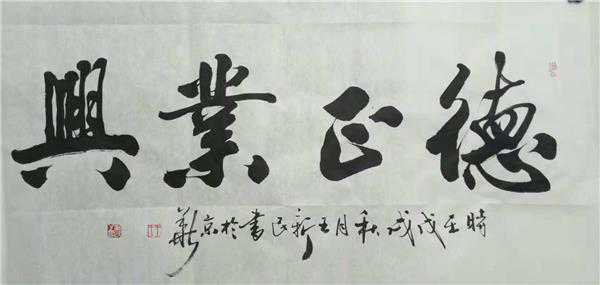 德正業興
時至戊戌秋月王新民書於京華